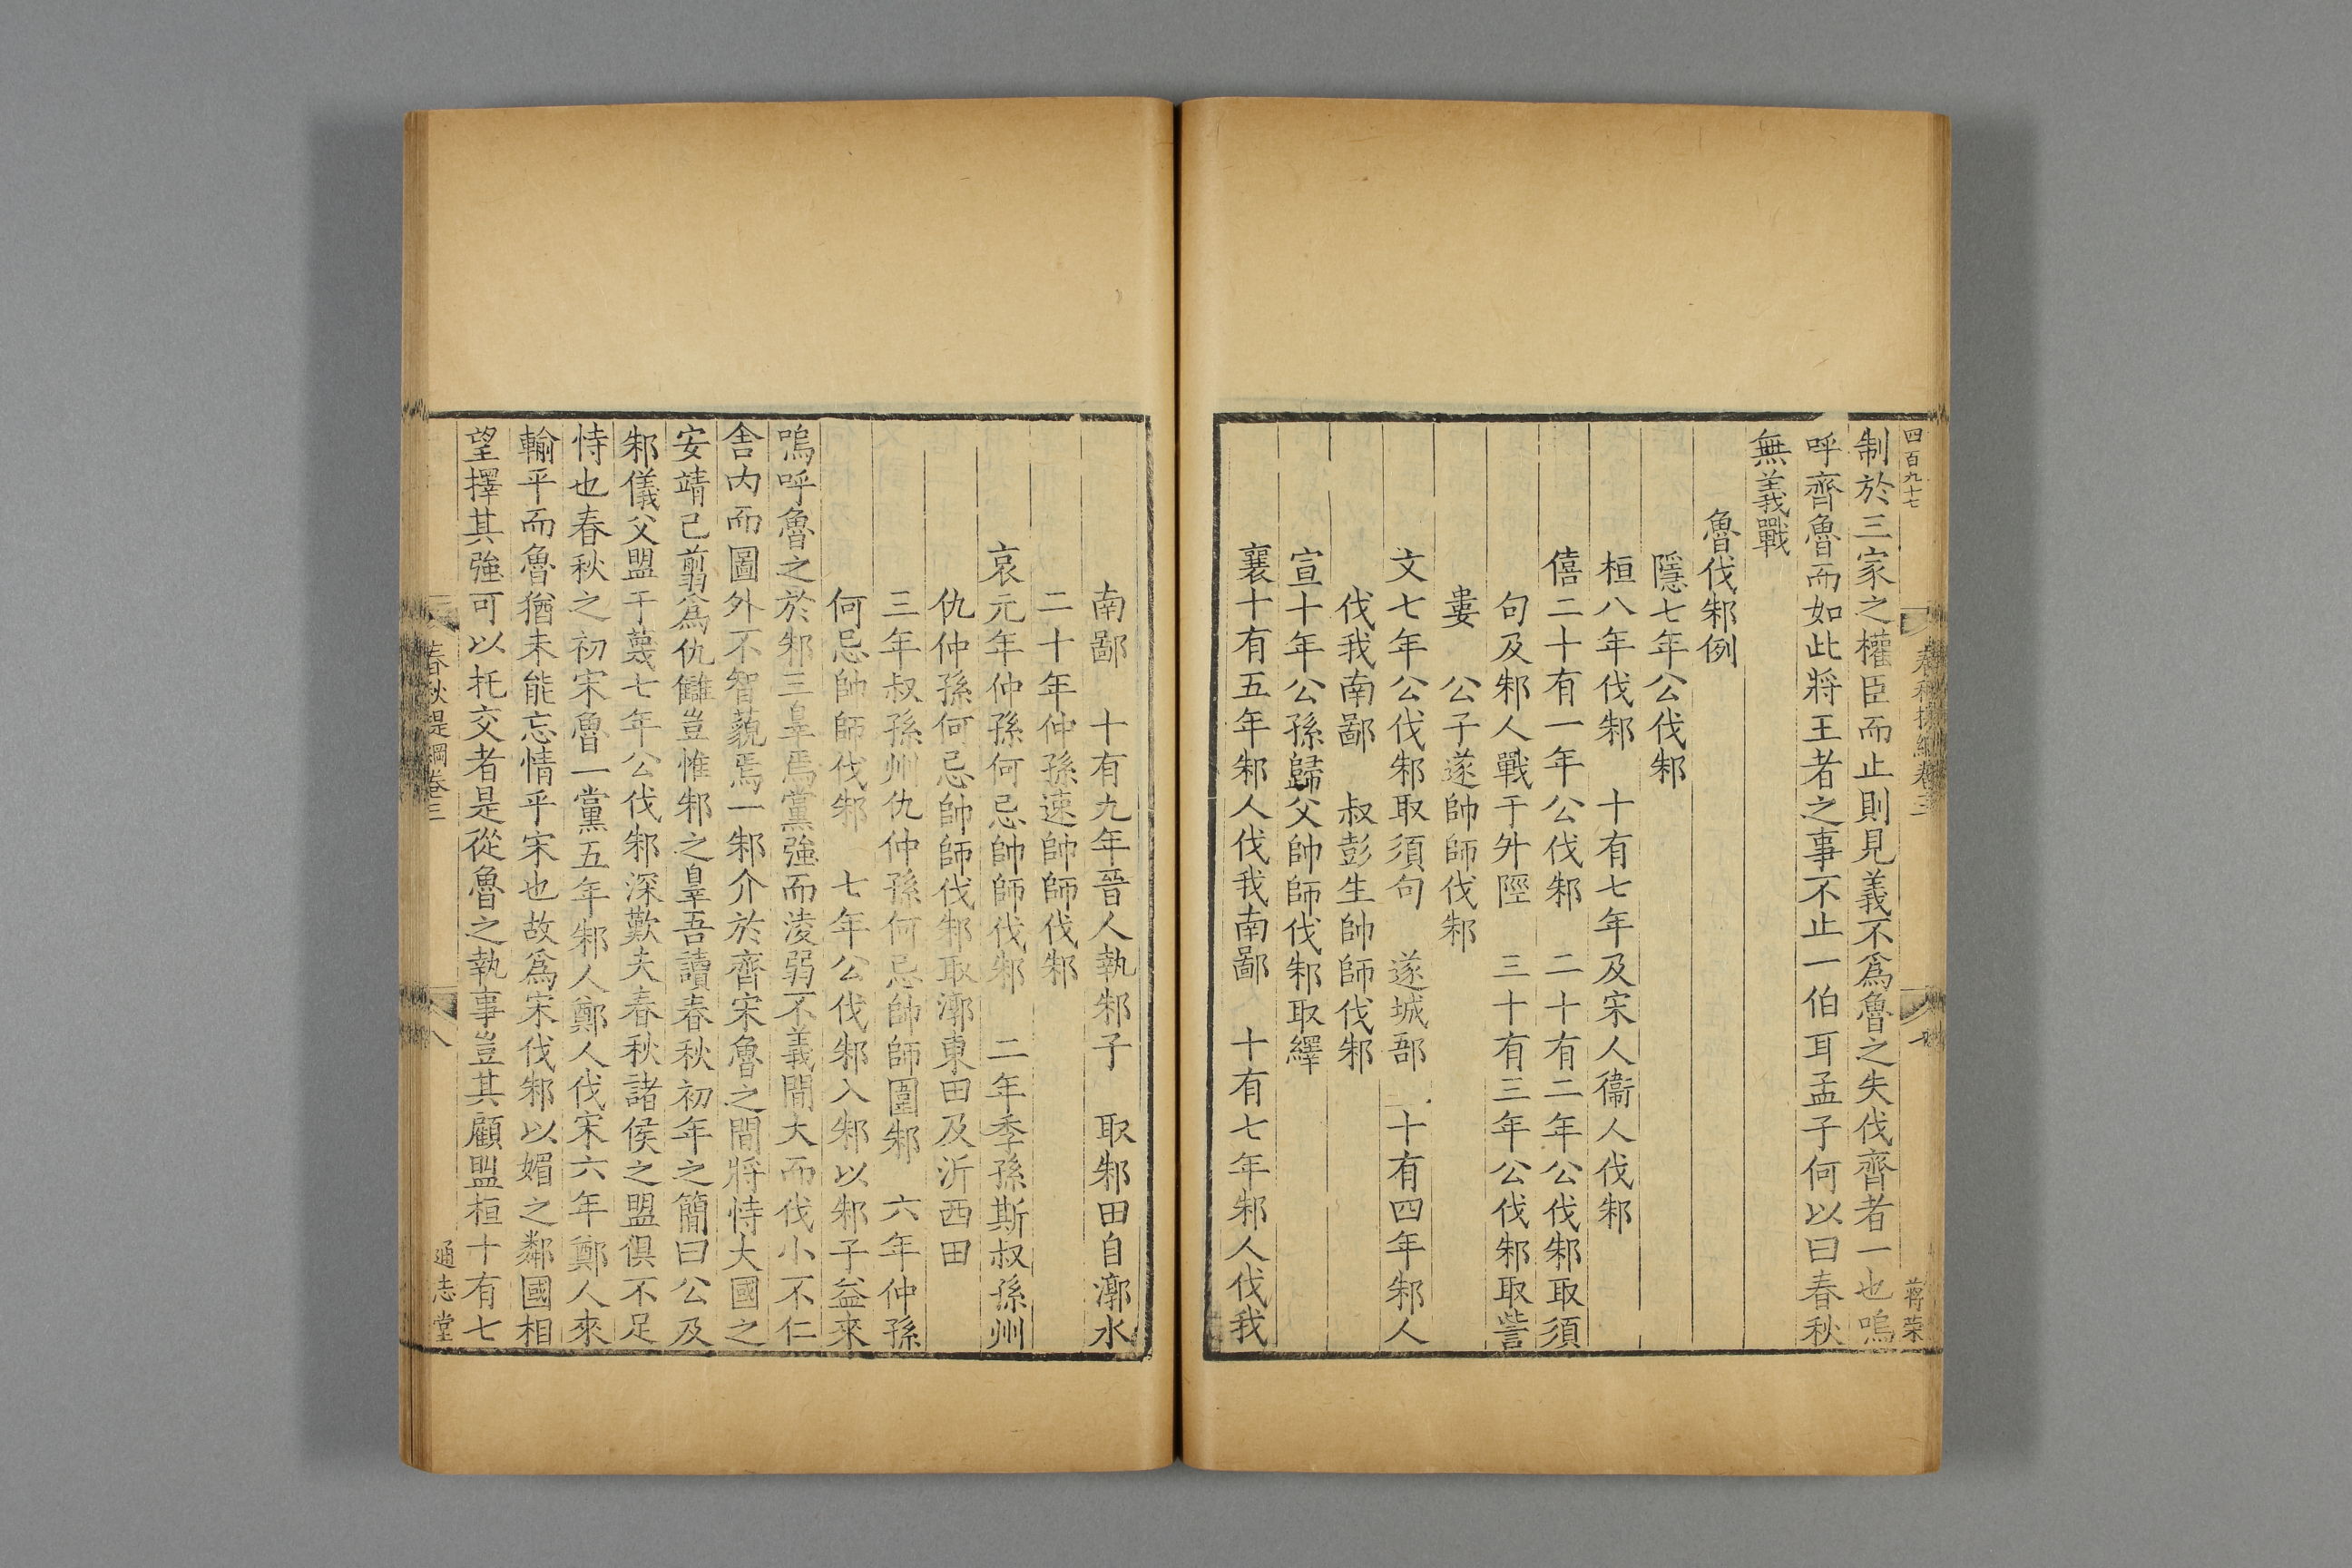 四百九十七
春秋提綱卷三
七
蔣榮
制於三家之權臣而止則見義不為魯之失伐齊者一也嗚
呼齊魯而如此將王者之事不止一伯耳孟子何以曰春秋
無義戰
魯伐邾例
隱七年公伐邾
桓八年伐邾　十有七年及宋人衞人伐邾
僖二十有一年公伐邾　二十有二年公伐邾取須
句及邾人戰于升陘　三十有三年公伐邾取訾
婁　公子遂帥師伐邾
文七年公伐邾取須句　遂城郚　十有四年邾人
伐我南鄙　叔彭生帥師伐邾
宣十年公孫歸父帥師伐邾取繹
襄十有五年邾人伐我南鄙　十有七年邾人伐我
南鄙　十有九年晉人執邾子　取邾田自漷水
二十年仲孫速帥師伐邾
哀元年仲孫何忌帥師伐邾　二年季孫斯叔孫州
仇仲孫何忌帥師伐邾取漷東田及沂西田
三年叔孫州仇仲孫何忌帥師圍邾　六年仲孫
何忌帥師伐邾　七年公伐邾入邾以邾子益來
嗚呼魯之於邾三辠焉黨強而淩弱不義間大而伐小不仁
舍内而圖外不智藐焉一邾介於齊宋魯之間將恃大國之
安靖己翦為仇讎豈惟邾之辠吾讀春秋初年之簡曰公及
邾儀父盟于蔑七年公伐邾深歎夫春秋諸侯之盟俱不足
恃也春秋之初宋魯一黨五年邾人鄭人伐宋六年鄭人來
輸平而魯猶未能忘情乎宋也故為宋伐邾以媚之鄰國相
望擇其強可以托交者是從魯之執事豈其顧盟桓十有七
春秋提綱卷三
八
通志堂